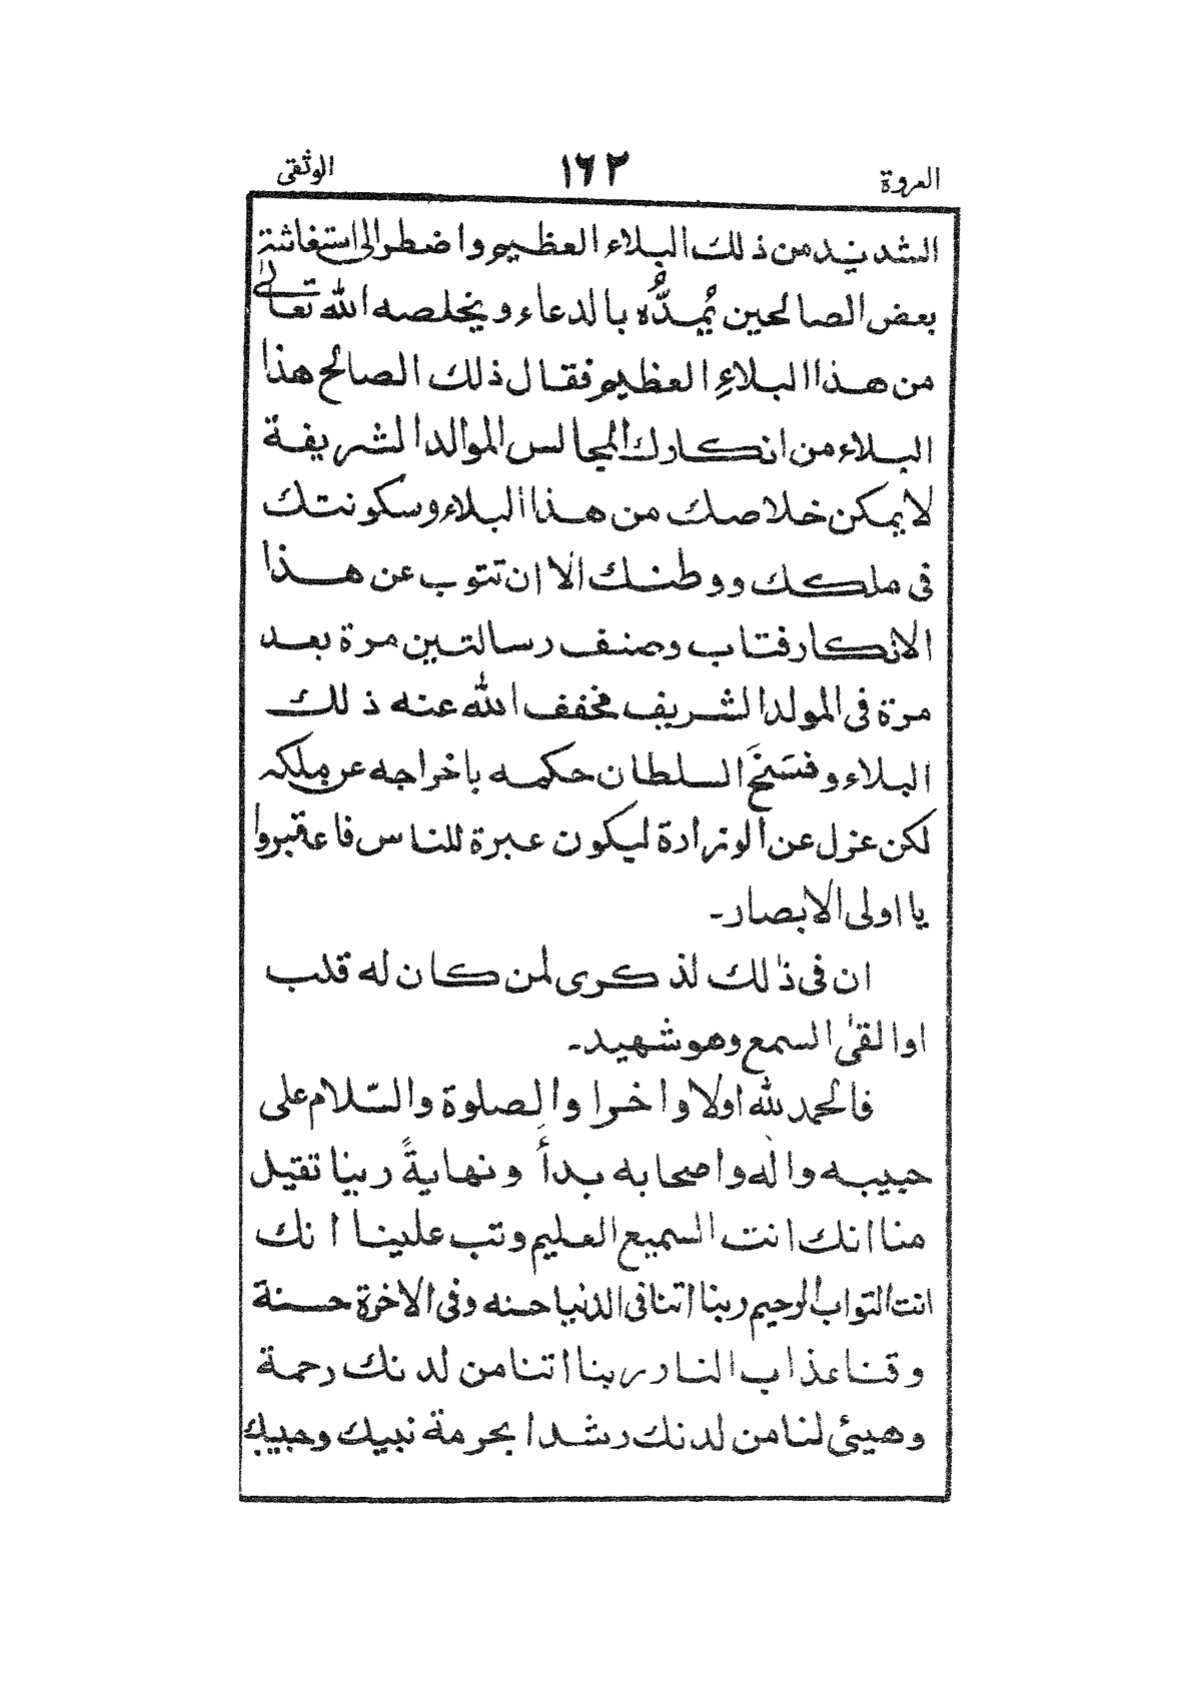 العروة ١٦٢ الوثقى
الشديد من ذلك البلاء العظيم واضطر الى استغاثة
بعض الصالحين يُمِدُّه بالدعاء ويخلصه الله تعالىٰ
من هذا البلاءِ العظيم فقال ذلك الصالح هذا
البلاء من انكارك المجالس الموالد الشريفة
لا يمكن خلاصك من هذا البلاء وسكونتك
فى ملكك ووطنك الا ان تتوب عن هذا
الانكار فتاب وصنف رسالتين مرة بعد
مرة فى المولد الشريف فخفف الله عنه ذلك
البلاء وفسَخَ السلطان حكمه باخراجه عن ملكه
لكن عزل عن الوزرادة ليكون عبرة للناس فاعتبروا
يا اولى الابصار۔
ان فى ذٰلك لذكرى لمن كان له قلب
او القىٰ السمع وهو شهيد۔
فالحمد لله اولا واخرا والصلوة والسّلام على
حبيبه واٰله واصحابه بدأً ونهايةً ربنا تقبل
منا انك انت السميع العليم وتب علينا انك
انت التواب الرحيم ربنا اتنا فى الدنيا حسنه وفى الاخرة حسنة
وقنا عذاب النار ربنا اتنا من لدنك رحمة
وهيئ لنا من لدنك رشدا بحرمة نبيك وحبيبك